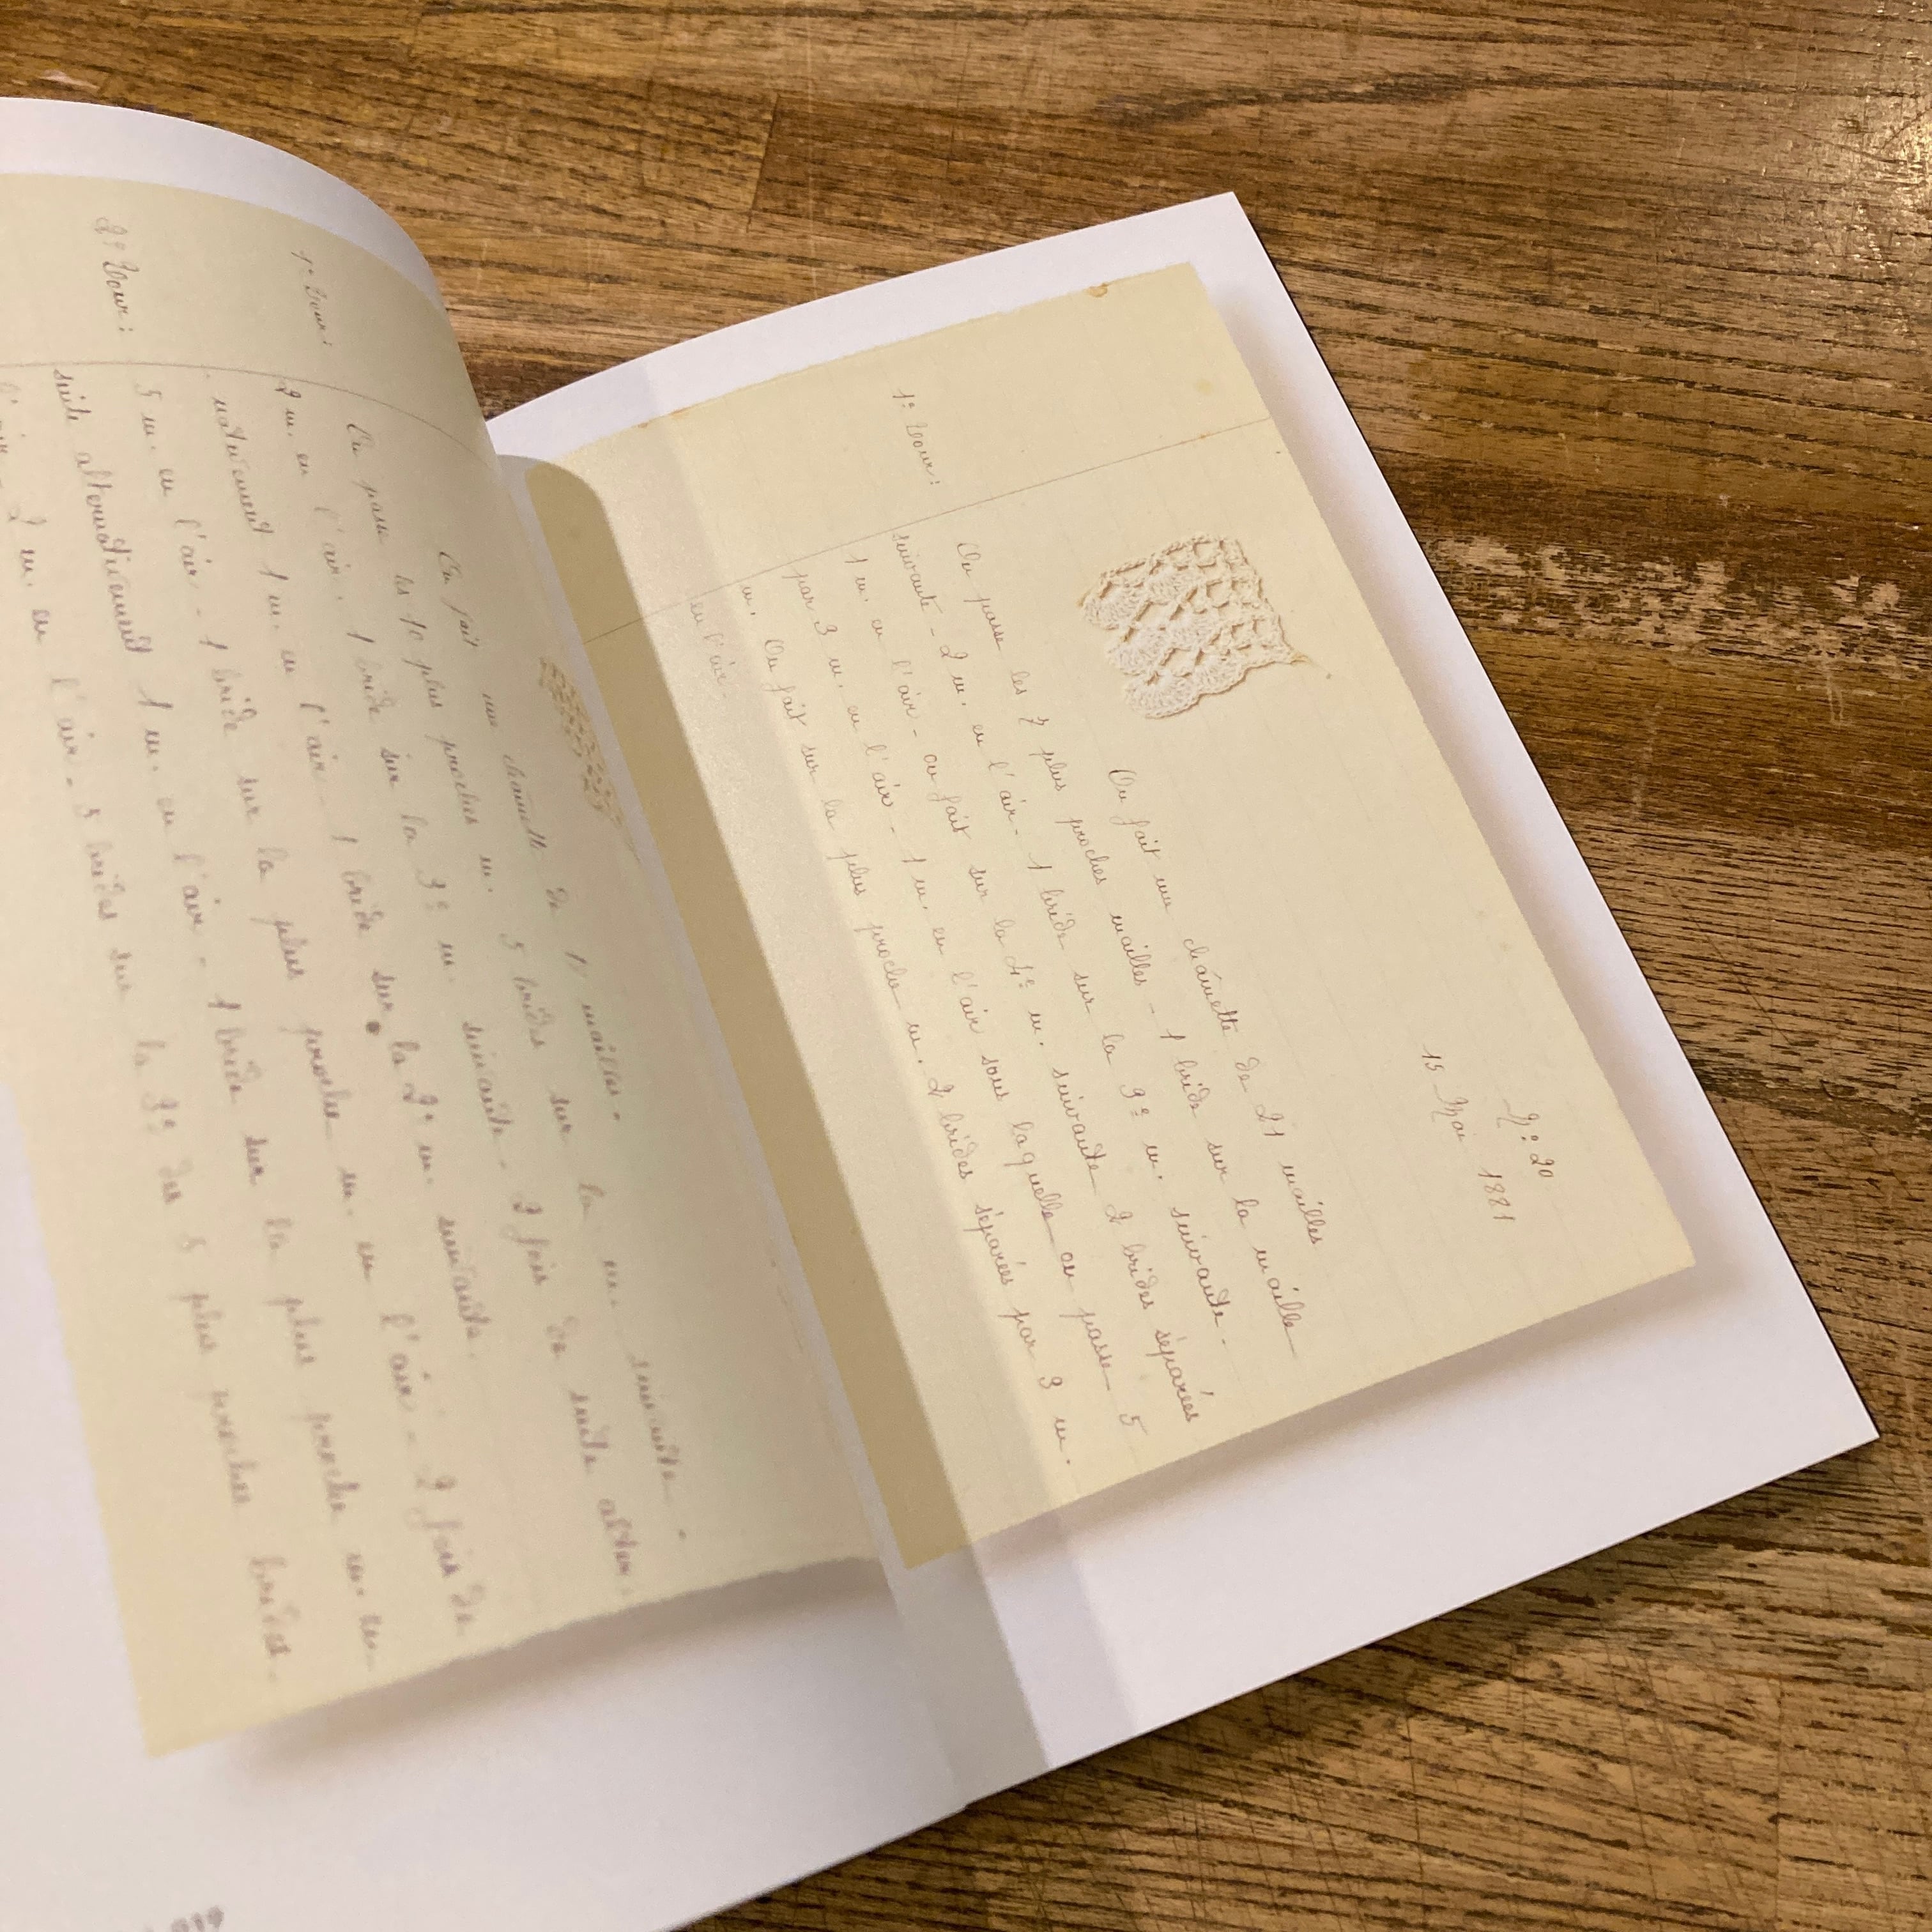 N: 20
15 Mai 1881
On fait une chaînette de 21 mailles
1e Tour: On passe les 7 plus proches mailles - 1 bride sur la maille
suivante - 2 m. en l'air - 1 bride sur la 3e m. suivante.
1 m. en l'air - on fait sur la 4e m. suivante 2 brides séparées
par 3 m. en l'air - 1 m. en l'air sous laquelle on passe 5
m. On fait sur la plus proche m. 2 brides séparées par 3 m.
en l'air.
On fait une chaînette de mailles.
1e Tour: On passe les 10 plus proches m. 5 brides sur la m. suivante.
2 m. en l'air. 1 bride sur la 3e m. suivante - 2 fois de suite alter-
nativement 1 m. en l'air - 1 bride sur la 2e m. suivante.
2e Tour: 5 m. en l'air - 1 bride sur la plus proche m. en l'air - 2 fois de
suite alternativement 1 m. en l'air - 1 bride sur la plus proche m. en
l'air. 2 m. en l'air. 5 brides sur la 3e des 5 plus proches brides.
019